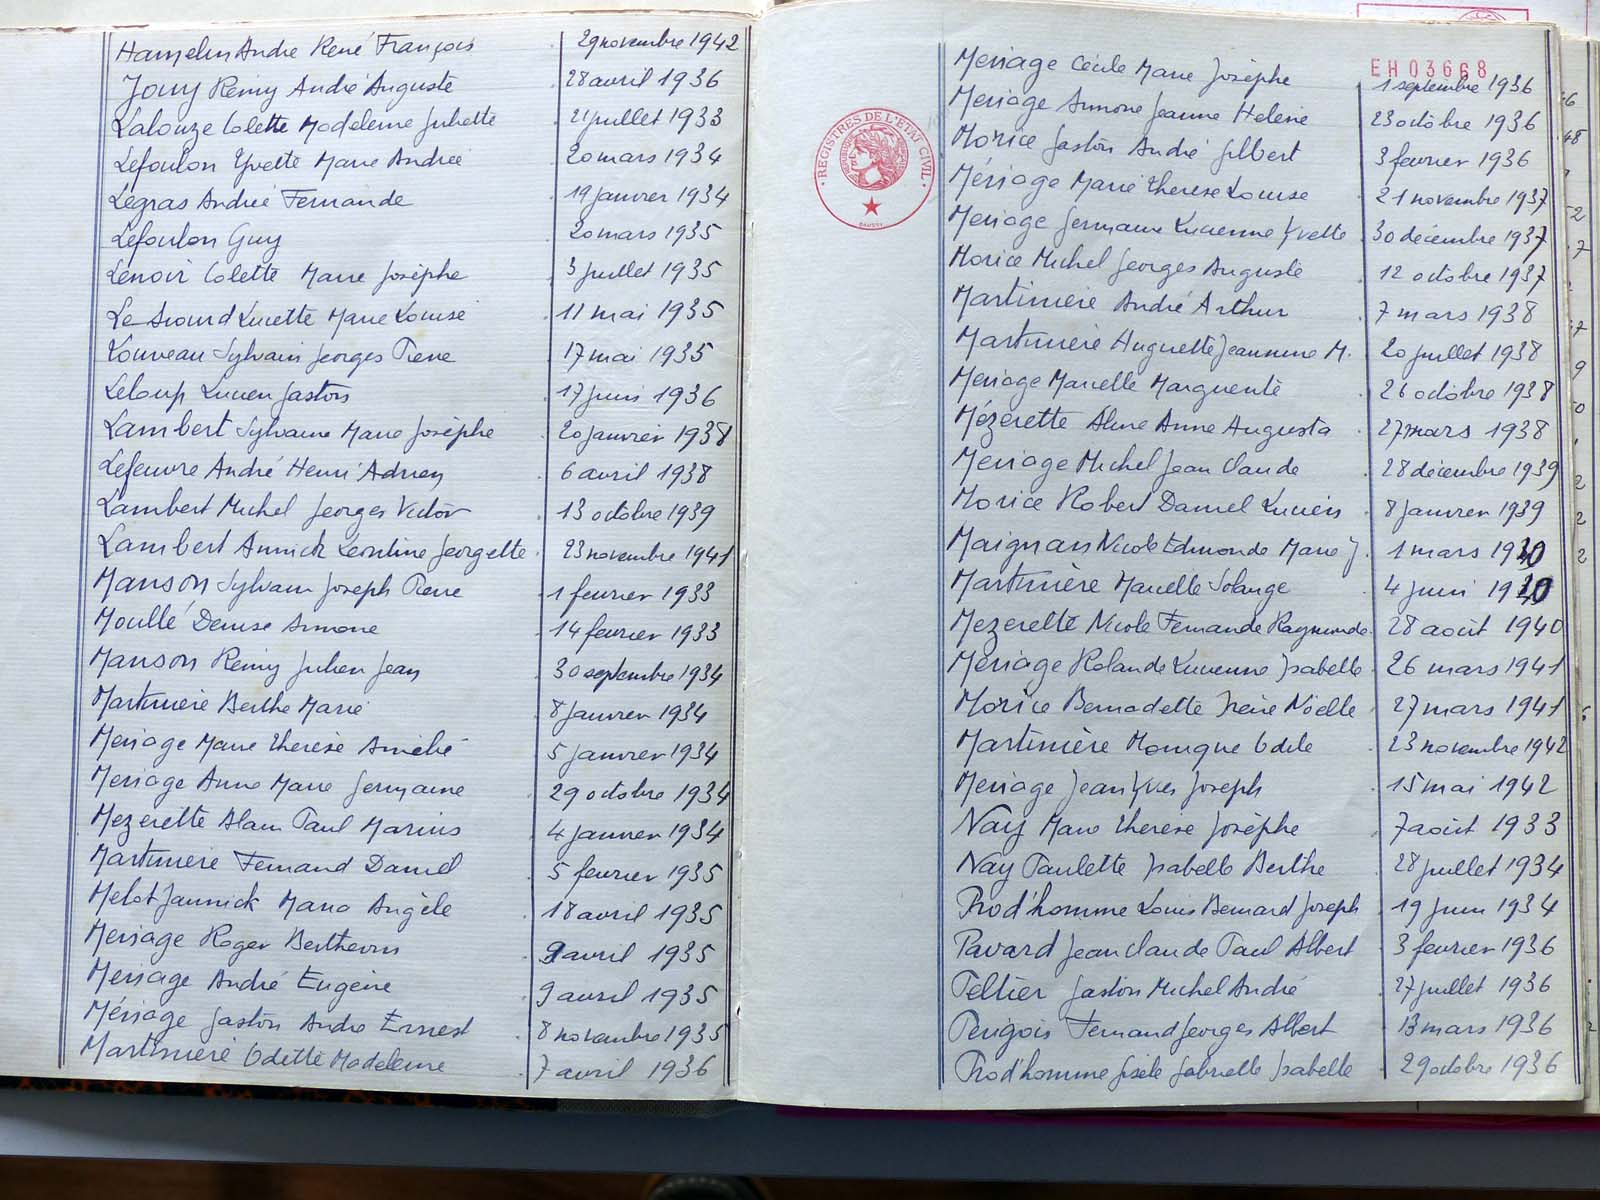 Hamelin André René François 29 novembre 1942
Jouy Rémy André Auguste 28 avril 1936
Lalouze Colette Madeleine Juliette 21 juillet 1933
Lefoulon Yvette Marie Andrée 20 mars 1934
Legras Andrée Fernande 19 janvier 1934
Lefoulon Guy 20 mars 1935
Lenoir Colette Marie Josèphe 3 juillet 1935
Le Lucette Marie Louise 11 mai 1935
Louveau Sylvain Georges Pierre 17 mai 1935
Leloup Lucien Gaston 17 juin 1936
Lambert Sylvaine Marie Josèphe 20 janvier 1938
Lefeuvre André Henri Adrien 6 avril 1938
Lambert Michel Georges Victor 13 octobre 1939
Lambert Annick Léontine Georgette 23 novembre 1941
Manson Sylvain Joseph Pierre 1 février 1933
Moullé Denise Simone 14 février 1933
Manson Rémy Julien Jean 30 septembre 1934
Martinière Berthe Marie 8 janvier 1934
Mériage Marie Thérèse Amélie 5 janvier 1934
Mériage Anne Marie Germaine 29 octobre 1934
Mezerette Alain Paul Marius 4 janvier 1934
Martinière Fernand Daniel 5 février 1935
Melot Jannick Maria Angèle 18 avril 1935
Mériage Roger 9 avril 1935
Mériage André Eugène 9 avril 1935
Mériage Gaston André Ernest 8 novembre 1935
Martinière Odette Madeleine 7 avril 1936
EH 03668
REGISTRES DE L'ETAT CIVIL
Mériage Cécile Marie Josèphe 1 septembre 1936
Mériage Simone Jeanne Hélène 23 octobre 1936
Morice Gaston André Gilbert 3 février 1936
Mériage Marie Thérèse Louise 21 novembre 1937
Mériage Germaine Lucienne Yvette 30 décembre 1937
Morice Michel Georges Auguste 12 octobre 1937
Martinière André Arthur 7 mars 1938
Martinière Huguette Jeannine M. 20 juillet 1938
Mériage Marcelle Marguerite 26 octobre 1938
Mézerette Aline Anne Augusta 27 mars 1938
Mériage Michel Jean Claude 28 décembre 1939
Morice Robert Daniel Lucien 8 janvier 1939
Maignan Nicole Edmonde Marie J. 1 mars 1940
Martinière Marcelle Solange 4 juin 1940
Mezerette Nicole Fernande Raymonde 28 août 1940
Mériage Rolande Lucienne Isabelle 26 mars 1941
Morice Bernadette Irène Noëlle 27 mars 1941
Martinière Monique Odile 23 novembre 1942
Mériage Jean Yves Joseph 15 mai 1942
Nay Marie Thérèse Josèphe 7 août 1933
Nay Paulette Isabelle Berthe 28 juillet 1934
Prod'homme Louis Bernard Joseph 19 juin 1934
Pavard Jean Claude Paul Albert 3 février 1936
Peltier Gaston Michel André 27 juillet 1936
Périgois Fernand Georges Albert 13 mars 1936
Prod'homme Gisèle Gabrielle Isabelle 29 octobre 1936